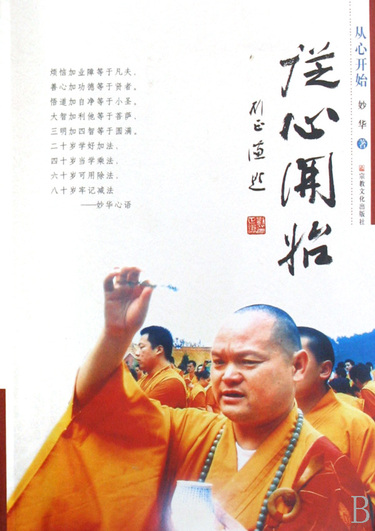 烦恼加业障等于凡夫、
善心加功德等于贤者。
悟道加自净等于小圣。
大智加利他等于菩萨、
三明加四智等于圆满。
二十岁学好加法、
四十岁当学乘法、
六十岁可用除法、
八十岁牢记减法
——妙华心语
从心开始
从心开始 妙华 著
宗教文化出版社
B